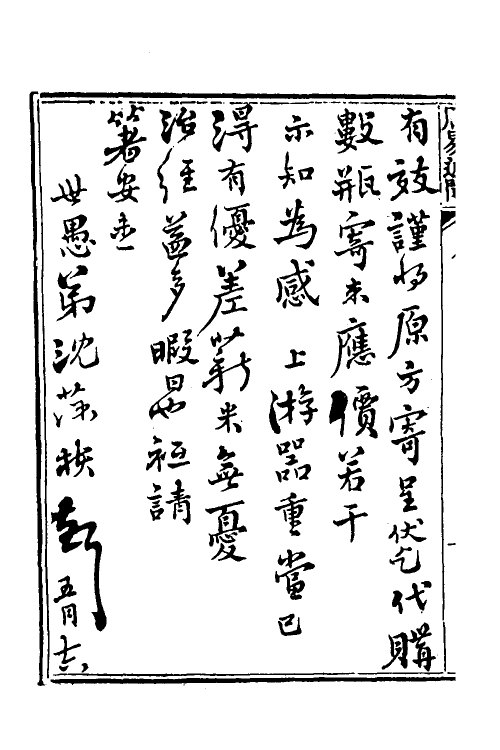 有效謹將原方寄呈伏乞代購
數瓶寄來應價若干
示知為感 上游器重當已
得有優差薪米無憂
治經益多暇晷也祗請
箸安
世愚弟沈藻
五月